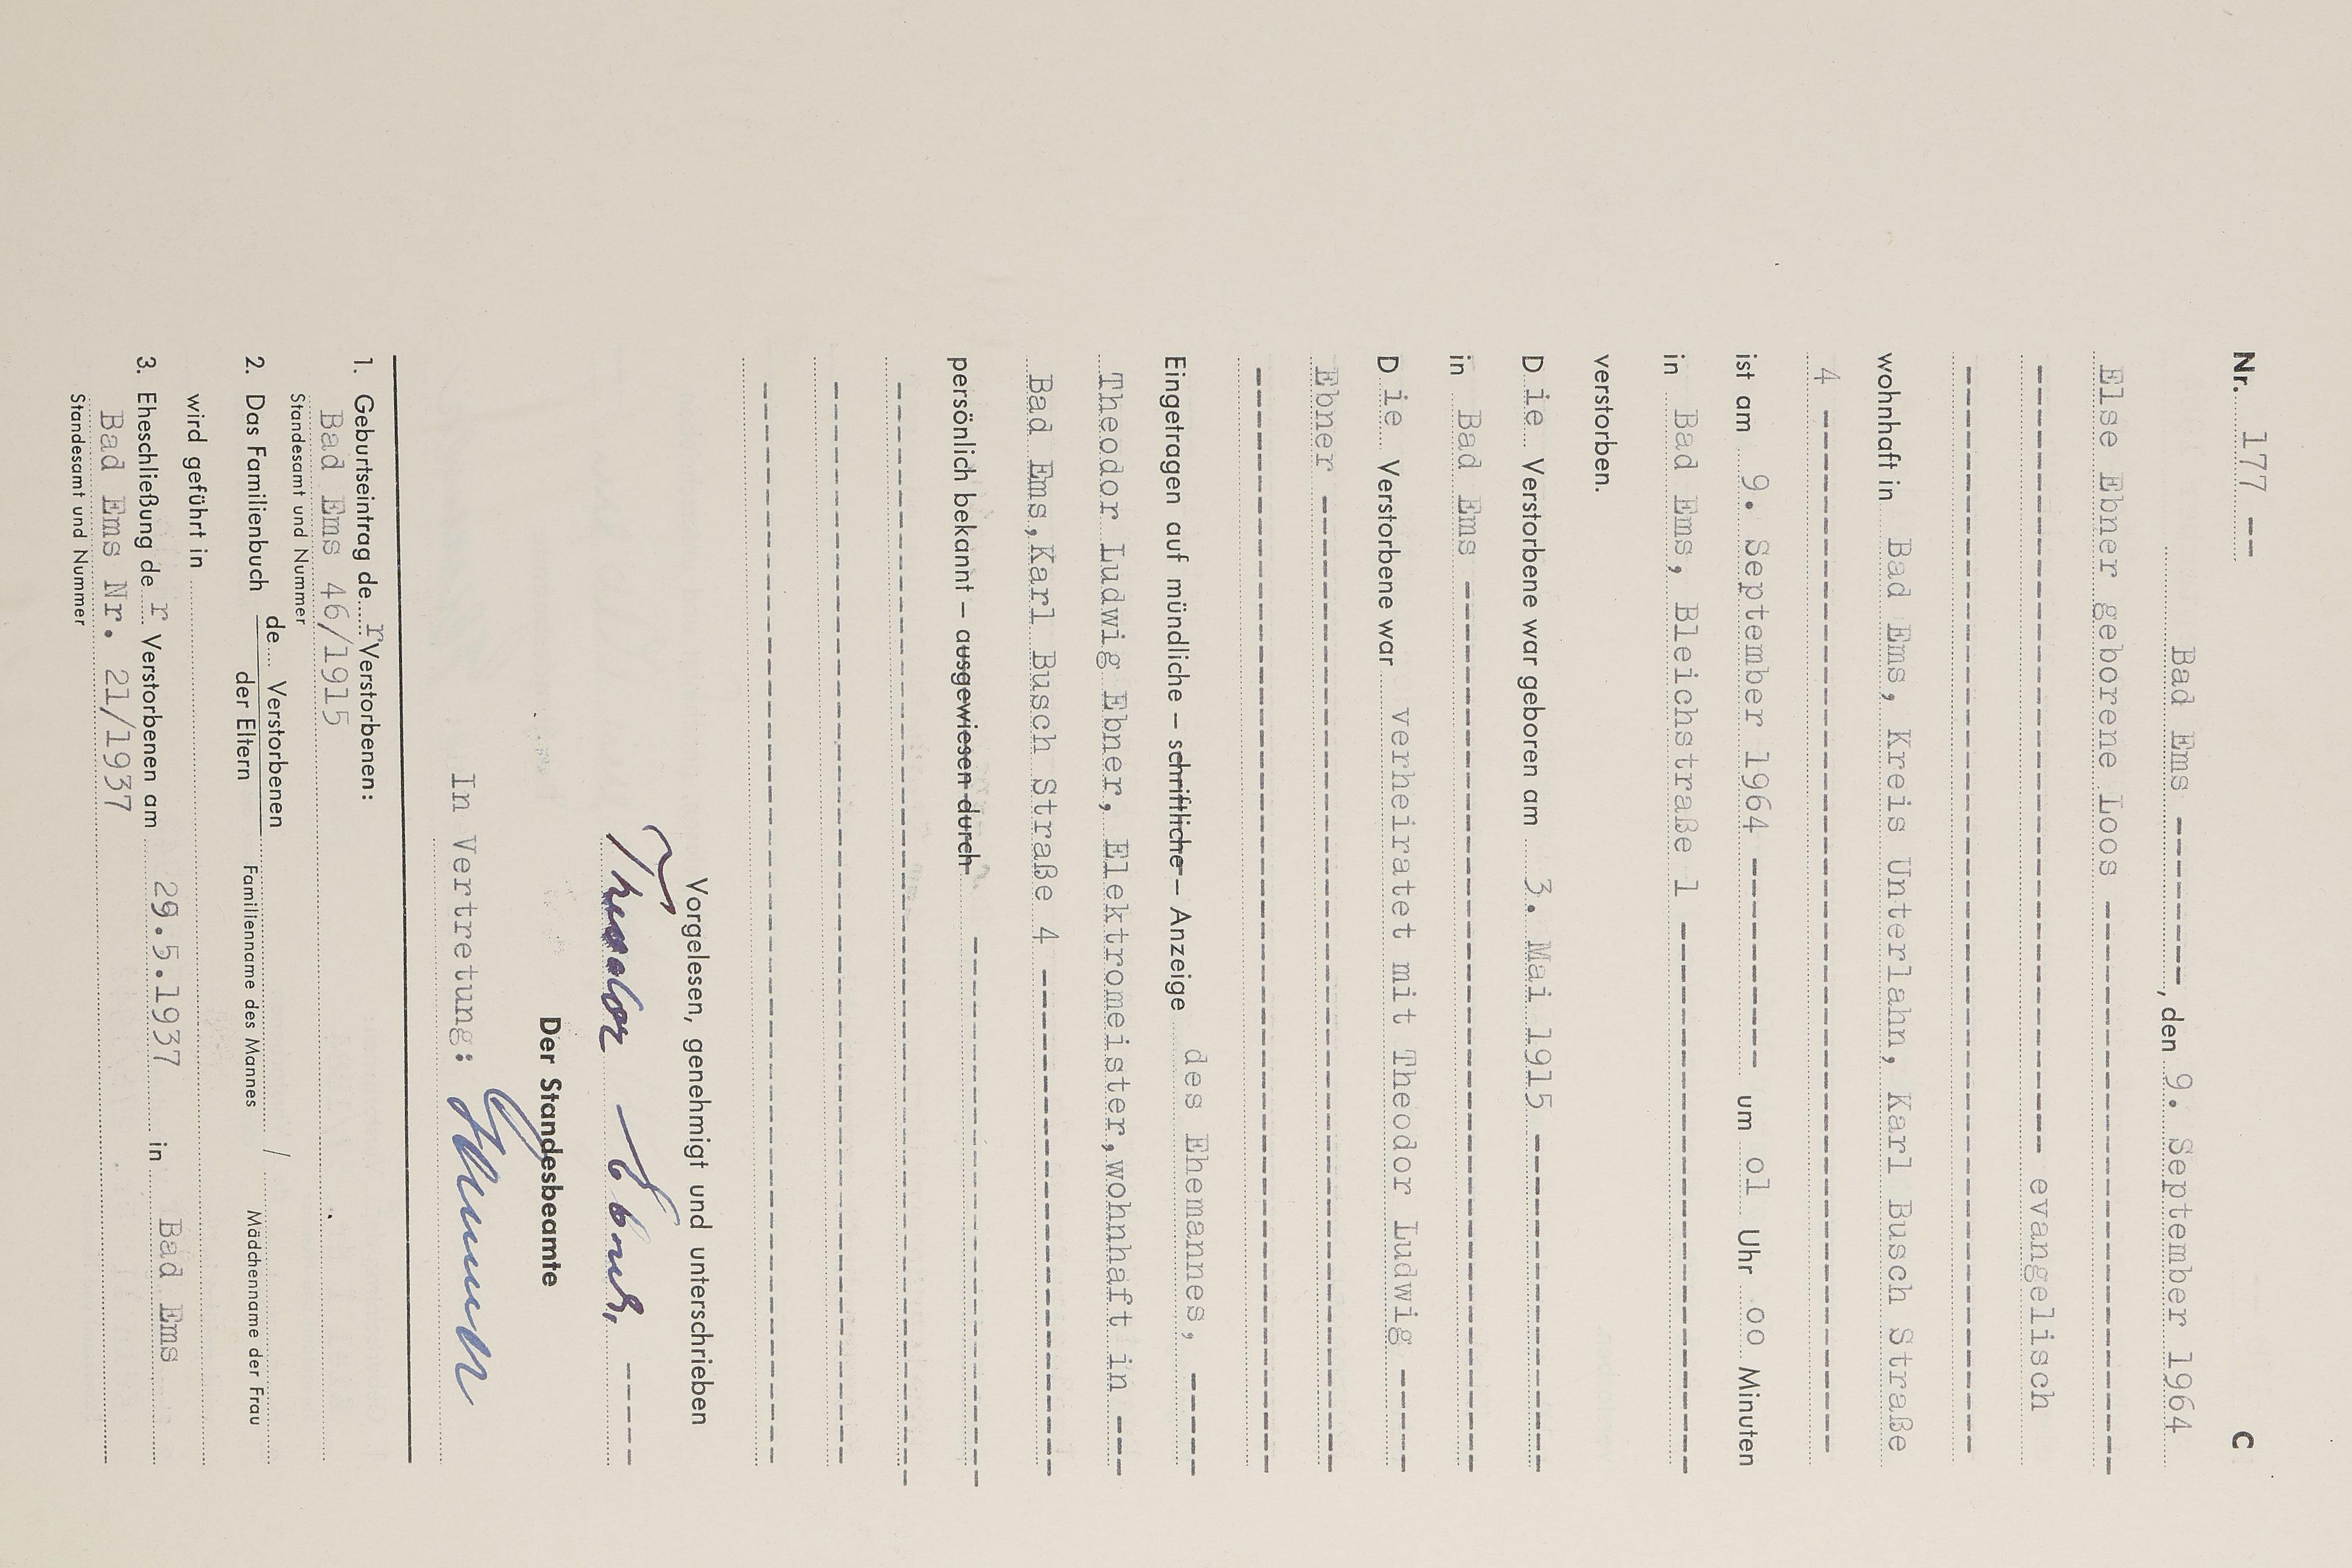 Nr. 177 -- C
Bad Ems ---------, den 9. September 1964
Else Ebner geborene Loos ------------------------------
---------------------------------------- evangelisch
------------------------------------------------------
wohnhaft in Bad Ems, Kreis Unterlahn, Karl Busch Straße
4 ----------------------------------------------------
ist am 9. September 1964 ----------- um o1 Uhr oo Minuten
in Bad Ems, Bleichstraße 1 -----------------------------
verstorben.
Die Verstorbene war geboren am 3. Mai 1915 -----------------
in Bad Ems ---------------------------------------------
Die Verstorbene war verheiratet mit Theodor Ludwig -----
Ebner -------------------------------------------------
------------------------------------------------------
Eingetragen auf mündliche – schriftliche – Anzeige des Ehemannes, -----
Theodor Ludwig Ebner, Elektromeister,wohnhaft in ---
Bad Ems,Karl Busch Straße 4 -------------------------
persönlich bekannt – ausgewiesen durch ----------------------------
------------------------------------------------------
------------------------------------------------------
------------------------------------------------------
Vorgelesen, genehmigt und unterschrieben
Theodor Ebner. -----
Der Standesbeamte
In Vertretung:
1. Geburtseintrag der Verstorbenen:
Bad Ems 46/1915
Standesamt und Nummer
2. Das Familienbuch de Verstorbenen /
der Eltern Familienname des Mannes Mädchenname der Frau
wird geführt in
3. Eheschließung der Verstorbenen am 29.5.1937 in Bad Ems
Bad Ems Nr. 21/1937
Standesamt und Nummer